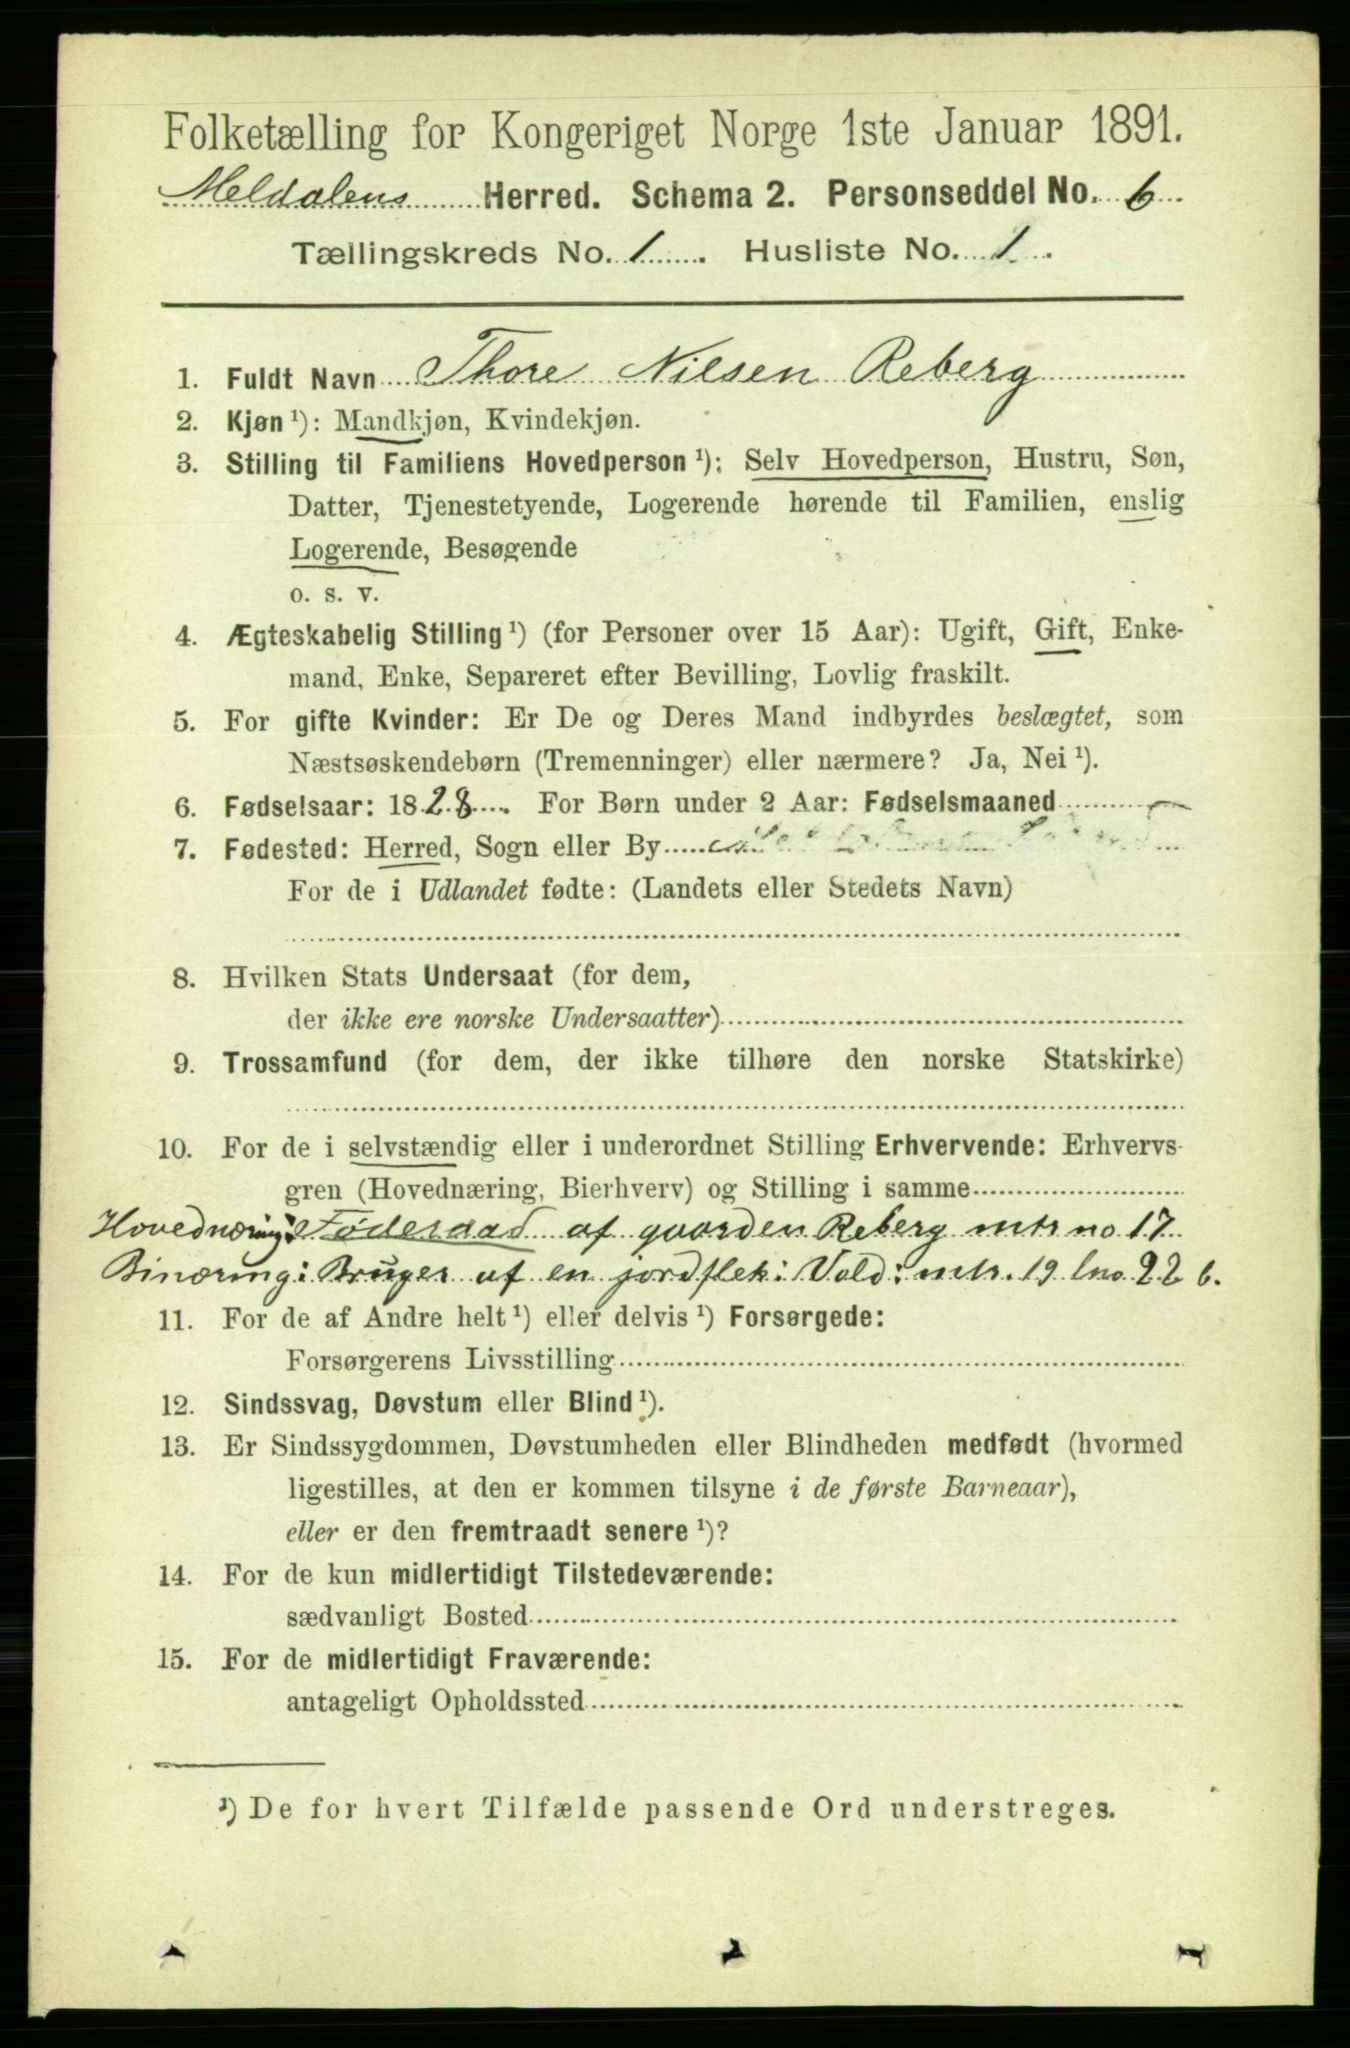 Folketælling for Kongeriget Norge 1ste Januar 1891.
Meldalens Herred. Schema 2. Personseddel No. 6
Tællingskreds No. 1. Husliste No. 1.
1. Fuldt Navn Thore Nilsen Reberg
2. Kjøn ¹): Mandkjøn, Kvindekjøn.
3. Stilling til Familiens Hovedperson ¹): Selv Hovedperson, Hustru, Søn,
Datter, Tjenestetyende, Logerende hørende til Familien, enslig
Logerende, Besøgende
o. s. v.
4. Ægteskabelig Stilling ¹) (for Personer over 15 Aar): Ugift, Gift, Enke-
mand, Enke, Separeret efter Bevilling, Lovlig fraskilt.
5. For gifte Kvinder: Er De og Deres Mand indbyrdes beslægtet, som
Næstsøskendebørn (Tremenninger) eller nærmere? Ja, Nei ¹).
6. Fødselsaar: 1828. For Børn under 2 Aar: Fødselsmaaned
7. Fødested: Herred, Sogn eller By
For de i Udlandet fødte: (Landets eller Stedets Navn)
8. Hvilken Stats Undersaat (for dem,
der ikke ere norske Undersaatter)
9. Trossamfund (for dem, der ikke tilhøre den norske Statskirke)
10. For de i selvstændig eller i underordnet Stilling Erhvervende: Erhvervs-
gren (Hovednæring, Bierhverv) og Stilling i samme
Hovednæring: Føderaad af gaarden Reberg mtr no 17
Binæring: Bruger af en jordflek: Vold: mtr. 19 lno 22 b.
11. For de af Andre helt ¹) eller delvis ¹) Forsørgede:
Forsørgerens Livsstilling
12. Sindssvag, Døvstum eller Blind ¹).
13. Er Sindssygdommen, Døvstumheden eller Blindheden medfødt (hvormed
ligestilles, at den er kommen tilsyne i de første Barneaar),
eller er den fremtraadt senere ¹)?
14. For de kun midlertidigt Tilstedeværende:
sædvanligt Bosted
15. For de midlertidigt Fraværende:
antageligt Opholdssted
¹) De for hvert Tilfælde passende Ord understreges.